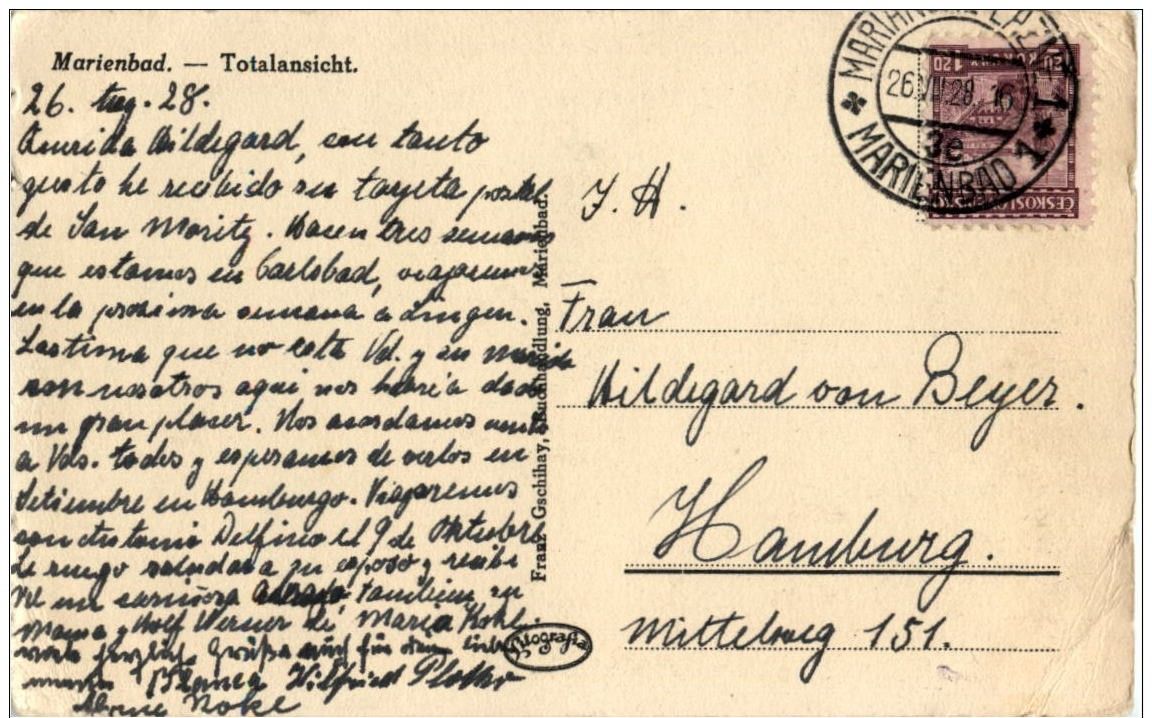 Marienbad. — Totalansicht.
26. Aug. 28.
Querida Hildegard, con tanto
gusto he recibido su tarjeta postal
de San Moritz. Hacen tres semanas
que estamos en Carlsbad, viajaremos
en la proxima semana a Lingen.
Lastima que no esta Vd. y su marido
con nosotros aqui nos haria dado
un gran placer. Nos acordamos
a Vds. todos y esperamos de verlos en
Setiembre en Hamburgo. Viajaremos
con Antonio Delfino el 9 de Oktubre
Le ruego saludar a su esposo y recibi
re un cariñoso abrazo, tambien su
Mama y Wolf Werner de Maria Koke.
herzliche Grüße auch für den lieben
Blanca Wilfried
Koke
Franz Gschihay, Buchhandlung, Marienbad.
Fotografia
MARIÁNSKÉ LÁZNĚ 1
26.VIII.28.16
3e
MARIENBAD 1
1 20 KORUNA 1 20
ČESKOSLOVENSKO
I. H.
Frau
Hildegard von Beyer.
Hamburg.
Mittelweg 151.